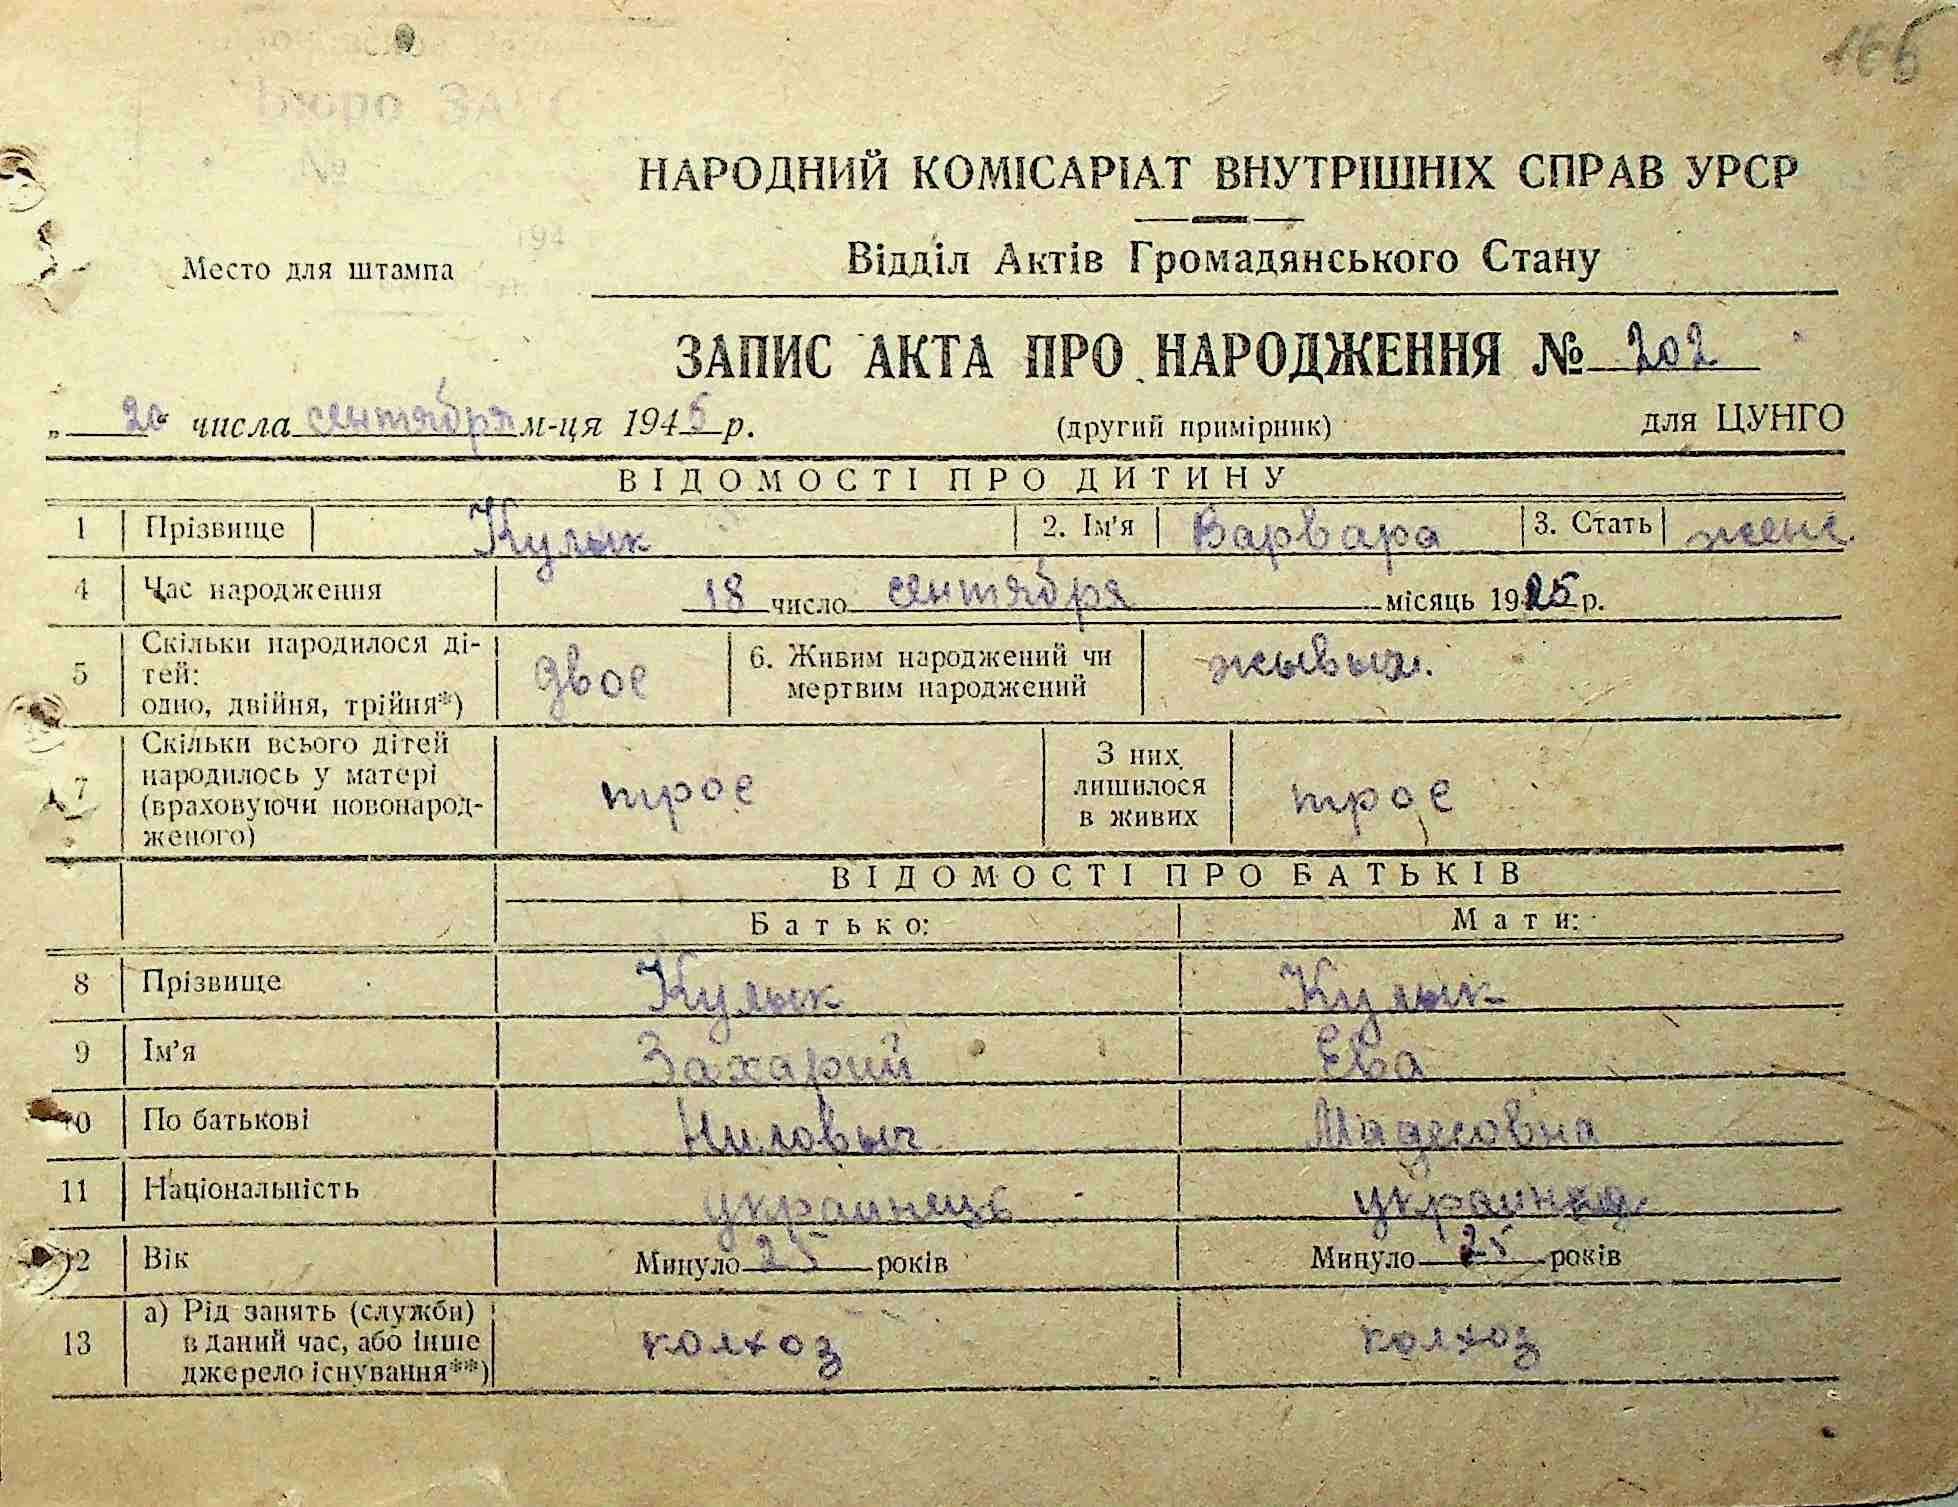 166
Бюро ЗАГС
№
194
НАРОДНИЙ КОМІСАРІАТ ВНУТРІШНІХ СПРАВ УРСР
Место для штампа
Відділ Актів Громадянського Стану
ЗАПИС АКТА ПРО НАРОДЖЕННЯ № 202
„ 20 “ числа сентября м-ця 1945 р. (другий примірник) для ЦУНГО
ВІДОМОСТІ ПРО ДИТИНУ
1 Прізвище Кулык 2. Ім'я Варвара 3. Стать женс
4 Час народження 18 число сентября місяць 1925 р.
5 Скільки народилося ді-
тей:
одно, двійня, трійня*) двое 6. Живим народжений чи
мертвим народжений жывых.
7 Скільки всього дітей
народилось у матері
(враховуючи новонарод-
женого) трое З них
лишилося
в живих трое
ВІДОМОСТІ ПРО БАТЬКІВ
Батько: Мати:
8 Прізвище Кулык Кулык
9 Ім'я Захарий Ева
10 По батькові Ниловыч
11 Національність украинець украинка
12 Вік Минуло 25 років Минуло 25 років
13 а) Рід занять (служби)
в даний час, або інше
джерело існування**) колхоз колхоз